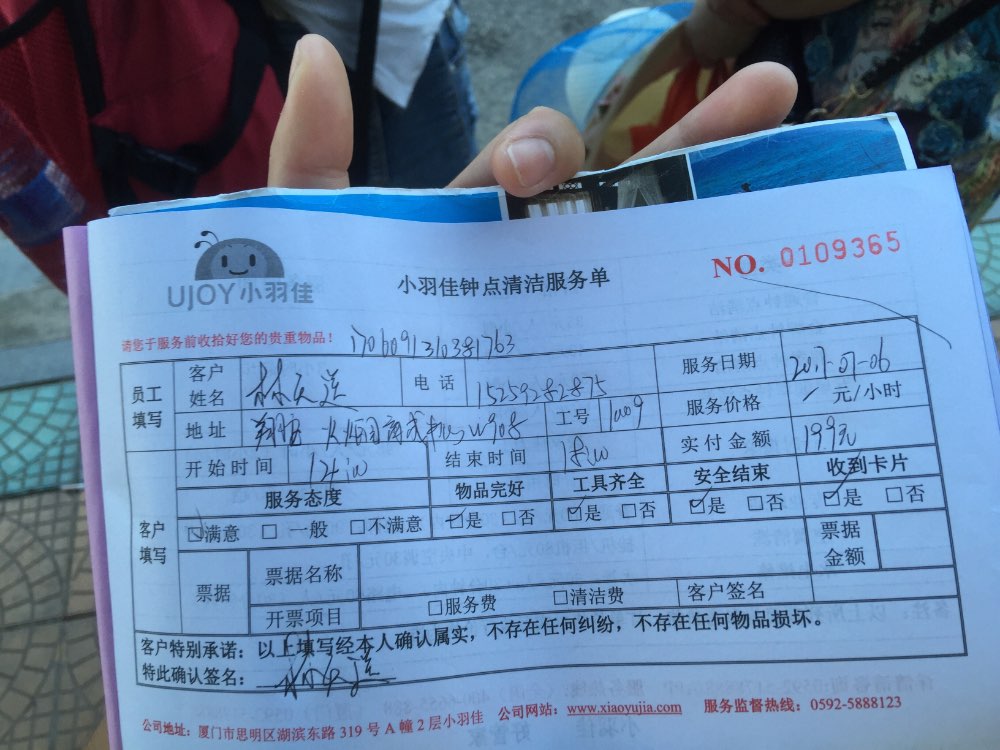 UJOY小羽佳
小羽佳钟点清洁服务单
NO. 0109365
请您于服务前收拾好您的贵重物品！
员工填写 客户姓名 电话 15259282875 服务日期 2017-07-06
地址 工号 服务价格 元/小时
开始时间 结束时间 实付金额 199元
客户填写 服务态度 物品完好 工具齐全 安全结束 收到卡片
满意 一般 不满意 是 否 是 否 是 否 是 否
票据 票据名称 票据金额
开票项目 服务费 清洁费 客户签名
客户特别承诺：以上填写经本人确认属实，不存在任何纠纷，不存在任何物品损坏。
特此确认签名：
公司地址：厦门市思明区湖滨东路 319 号 A 幢 2 层小羽佳 公司网站：www.xiaoyujia.com 服务监督热线：0592-5888123